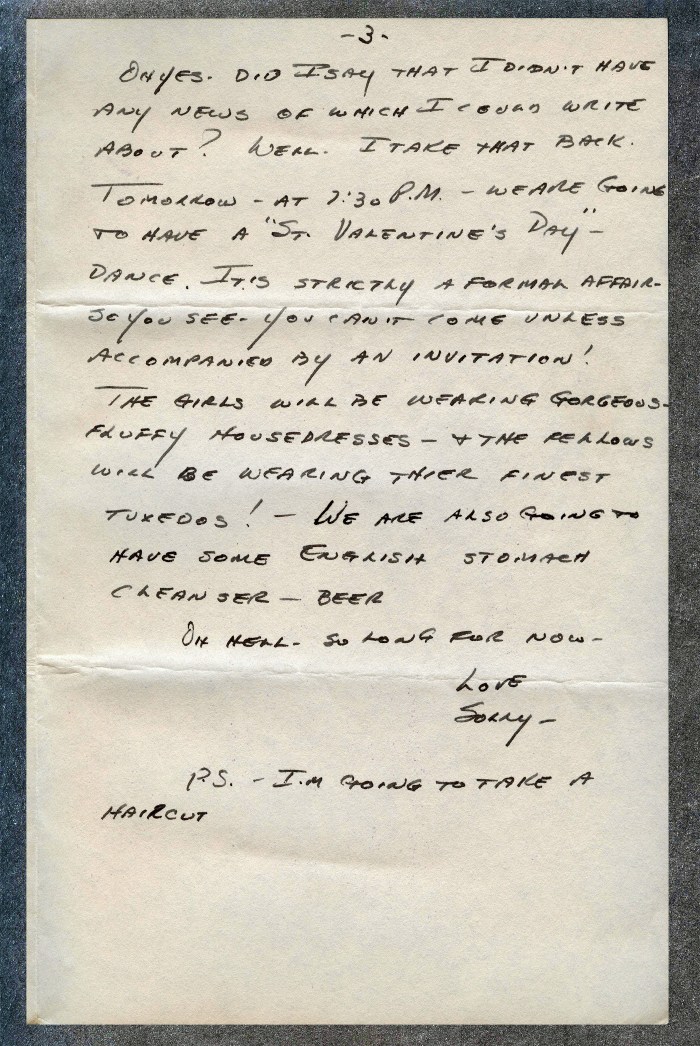 -3-
OH YES. DID I SAY THAT I DIDN'T HAVE
ANY NEWS OF WHICH I COULD WRITE
ABOUT? WELL. I TAKE THAT BACK.
TOMORROW - AT 7:30 P.M. - WE ARE GOING
TO HAVE A "ST. VALENTINE'S DAY" -
DANCE. IT'S STRICTLY A FORMAL AFFAIR-
SO YOU SEE- YOU CAN'T COME UNLESS
ACCOMPANIED BY AN INVITATION!
THE GIRLS WILL BE WEARING GORGEOUS-
FLUFFY HOUSEDRESSES - & THE FELLOWS
WILL BE WEARING THIER FINEST
TUXEDOS! - WE ARE ALSO GOING TO
HAVE SOME ENGLISH STOMACH
CLEANSER - BEER
OH HELL- SO LONG FOR NOW-
LOVE
SOLLY -
P.S. - I'M GOING TO TAKE A
HAIRCUT